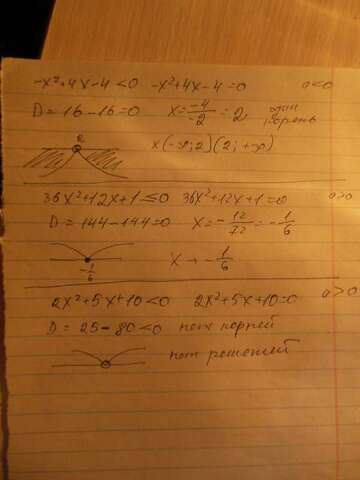 -x²+4x-4<0 -x²+4x-4=0 a<0
D=16-16=0 x=-4/-2=2, один корень
2
x(-∞;2)(2;+∞)
36x²+12x+1≤0 36x²+12x+1=0 a>0
D=144-144=0 x=-12/72=-1/6
-1/6
x=-1/6
2x²+5x+10<0 2x²+5x+10=0 a>0
D=25-80<0 нет корней
нет решений